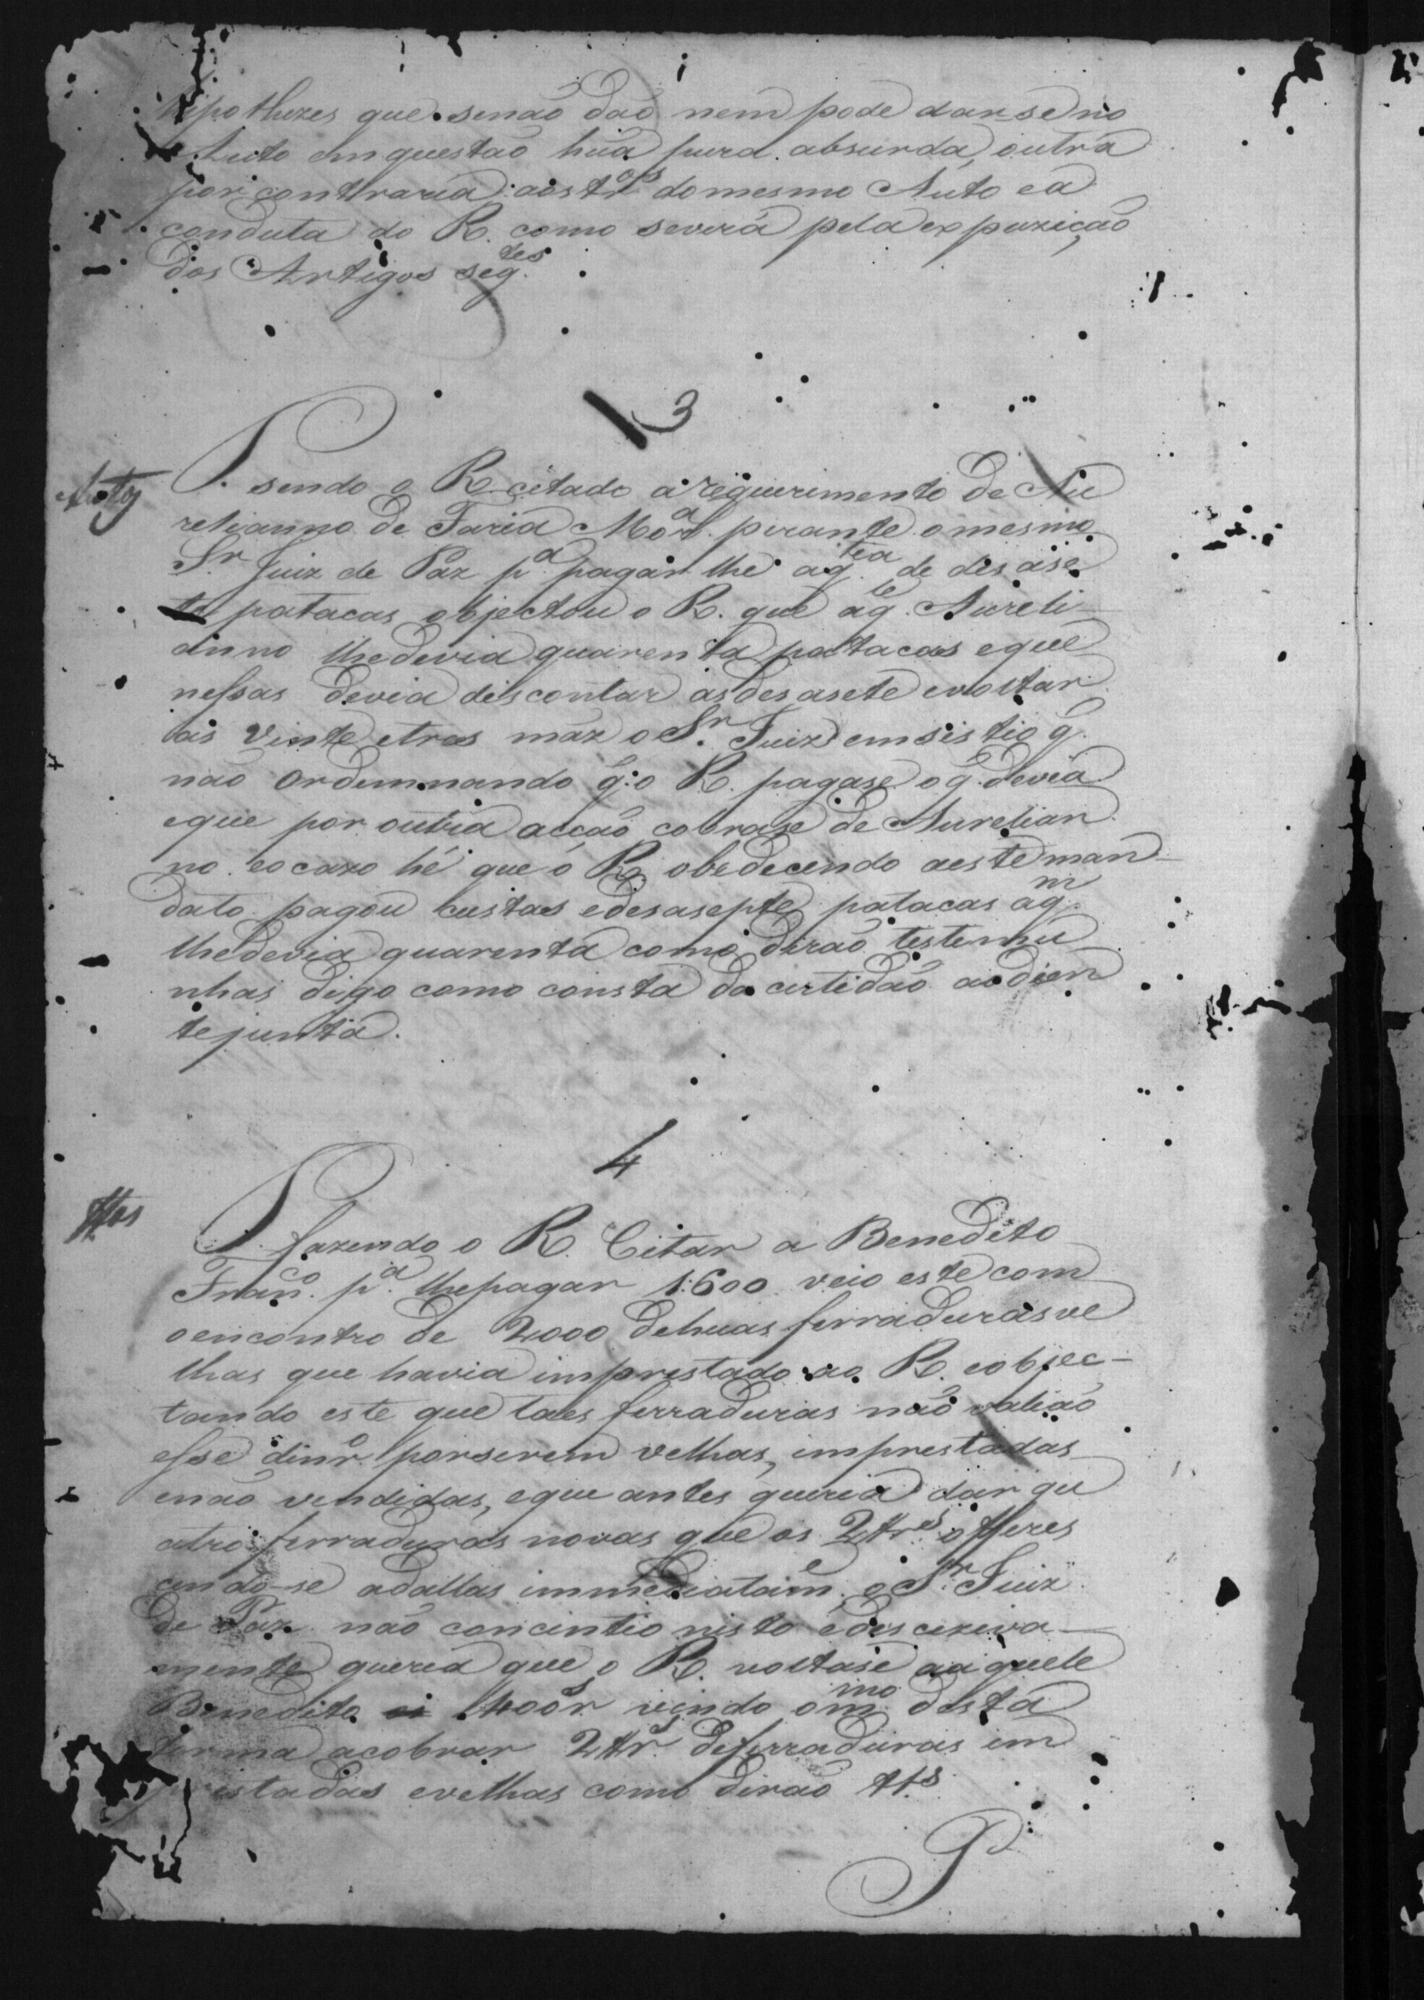 hipothezes que senão dão nem pode darse no
Auto em questão húa pura absurda, outra
por contraria aos tr.os do mesmo Auto e a
conduta do R. como severá pela expuzição
dos Artigos seg.tes
3
P. sendo o R. citado a requerimento de Au
relianno de Faria Mor.a perante o mesmo
Sr. Juiz de Paz p.a pagar lhe a q.tea de desase
te patacas, objectou o R. que aq.le Aureli
anno lhe devia quarenta patacas e que
nessas devia discontar as desasete e voltar
as vinte e tras máz o Sr. Juiz emsistio q.
não ordemnando q. o R. pagase o q. devia
e que por outra acção cobrase de Aurelian
no. e o cazo hé que o R. obedecendo a este man
dato pagou custas e desasepte patacas a q.m
lhe devia quarenta como dirão testemu
nhas digo como consta da certidão ao dien
te junta.
4
P. fazendo o R. Citar a Benedito
Fran.co p.a lhe pagar 1:600 veio este com
o encontro de 2000 de huas ferraduras ve
lhas que havia imprestado ao R. e objec-
tando este que taes ferraduras não valião
esse dinr.o por serem velhas, imprestadas
e não vendidas, e que antes queria dar qu
atro ferraduras novas que os 2#r.es offeres
cendo-se a dallas immediatam.e, o Sr. Juiz
de Paz não concintio nisto e descizeiva-
mente queria que o R. voltase a aquele
Benedito 400r.s vindo o m.mo desta
forma a cobrar 2#r.s de ferraduras im
prestadas e velhas como dirão tt.s
P